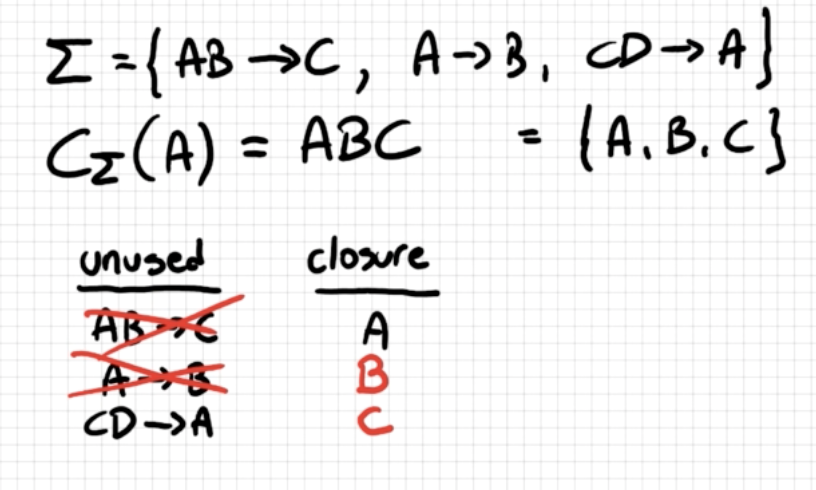 Σ = { AB → C, A → B, CD → A }
C_Σ(A) = ABC = { A, B, C }
unused closure
AB → C A
A → B B
CD → A C